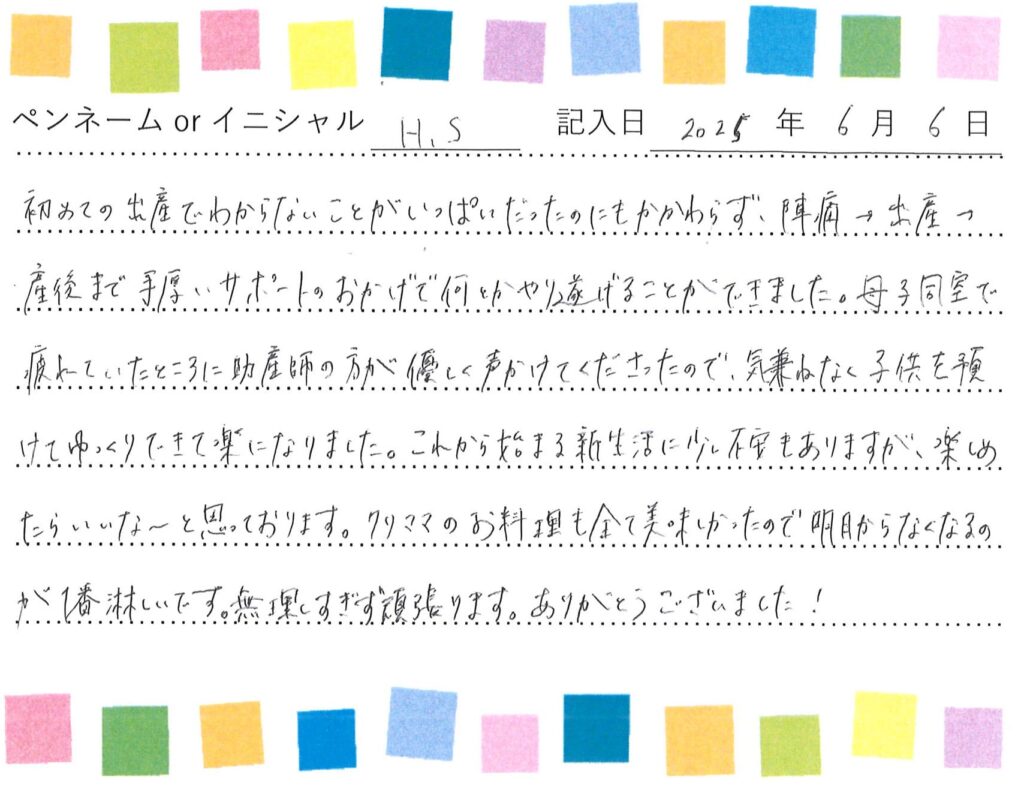 ペンネーム or イニシャル H,S 記入日 2025 年 6 月 6 日
初めての出産でわからないことがいっぱいだったのにもかかわらず、陣痛→出産→
産後まで手厚いサポートのおかげで何とかやり遂げることができました。母子同室で
疲れていたところに助産師の方が優しく声かけてくださったので、気兼ねなく子供を預
けてゆっくりできて楽になりました。これから始まる新生活に少し不安もありますが、楽しめ
たらいいな〜と思っております。クリママのお料理も全て美味しかったので明日からなくなるの
が1番淋しいです。無理しすぎず頑張ります。ありがとうございました!